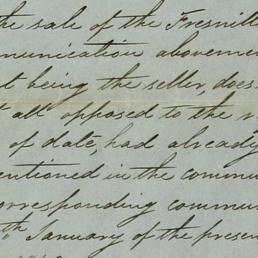 the sale of the Fresnill
munication abovemen
t being the seller, does
all opposed to the
of date, had already
entioned in the commu
orresponding commun
th January of the presen